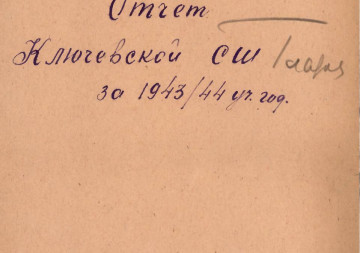 Отчет
Ключевской СШ
за 1943/44 уч. год.